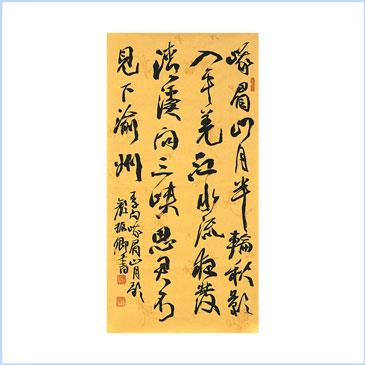 峨眉山月半輪秋影
入平羌江水流夜發
清溪向三峽思君不
見下渝州
李白峨眉山月歌
振卿書